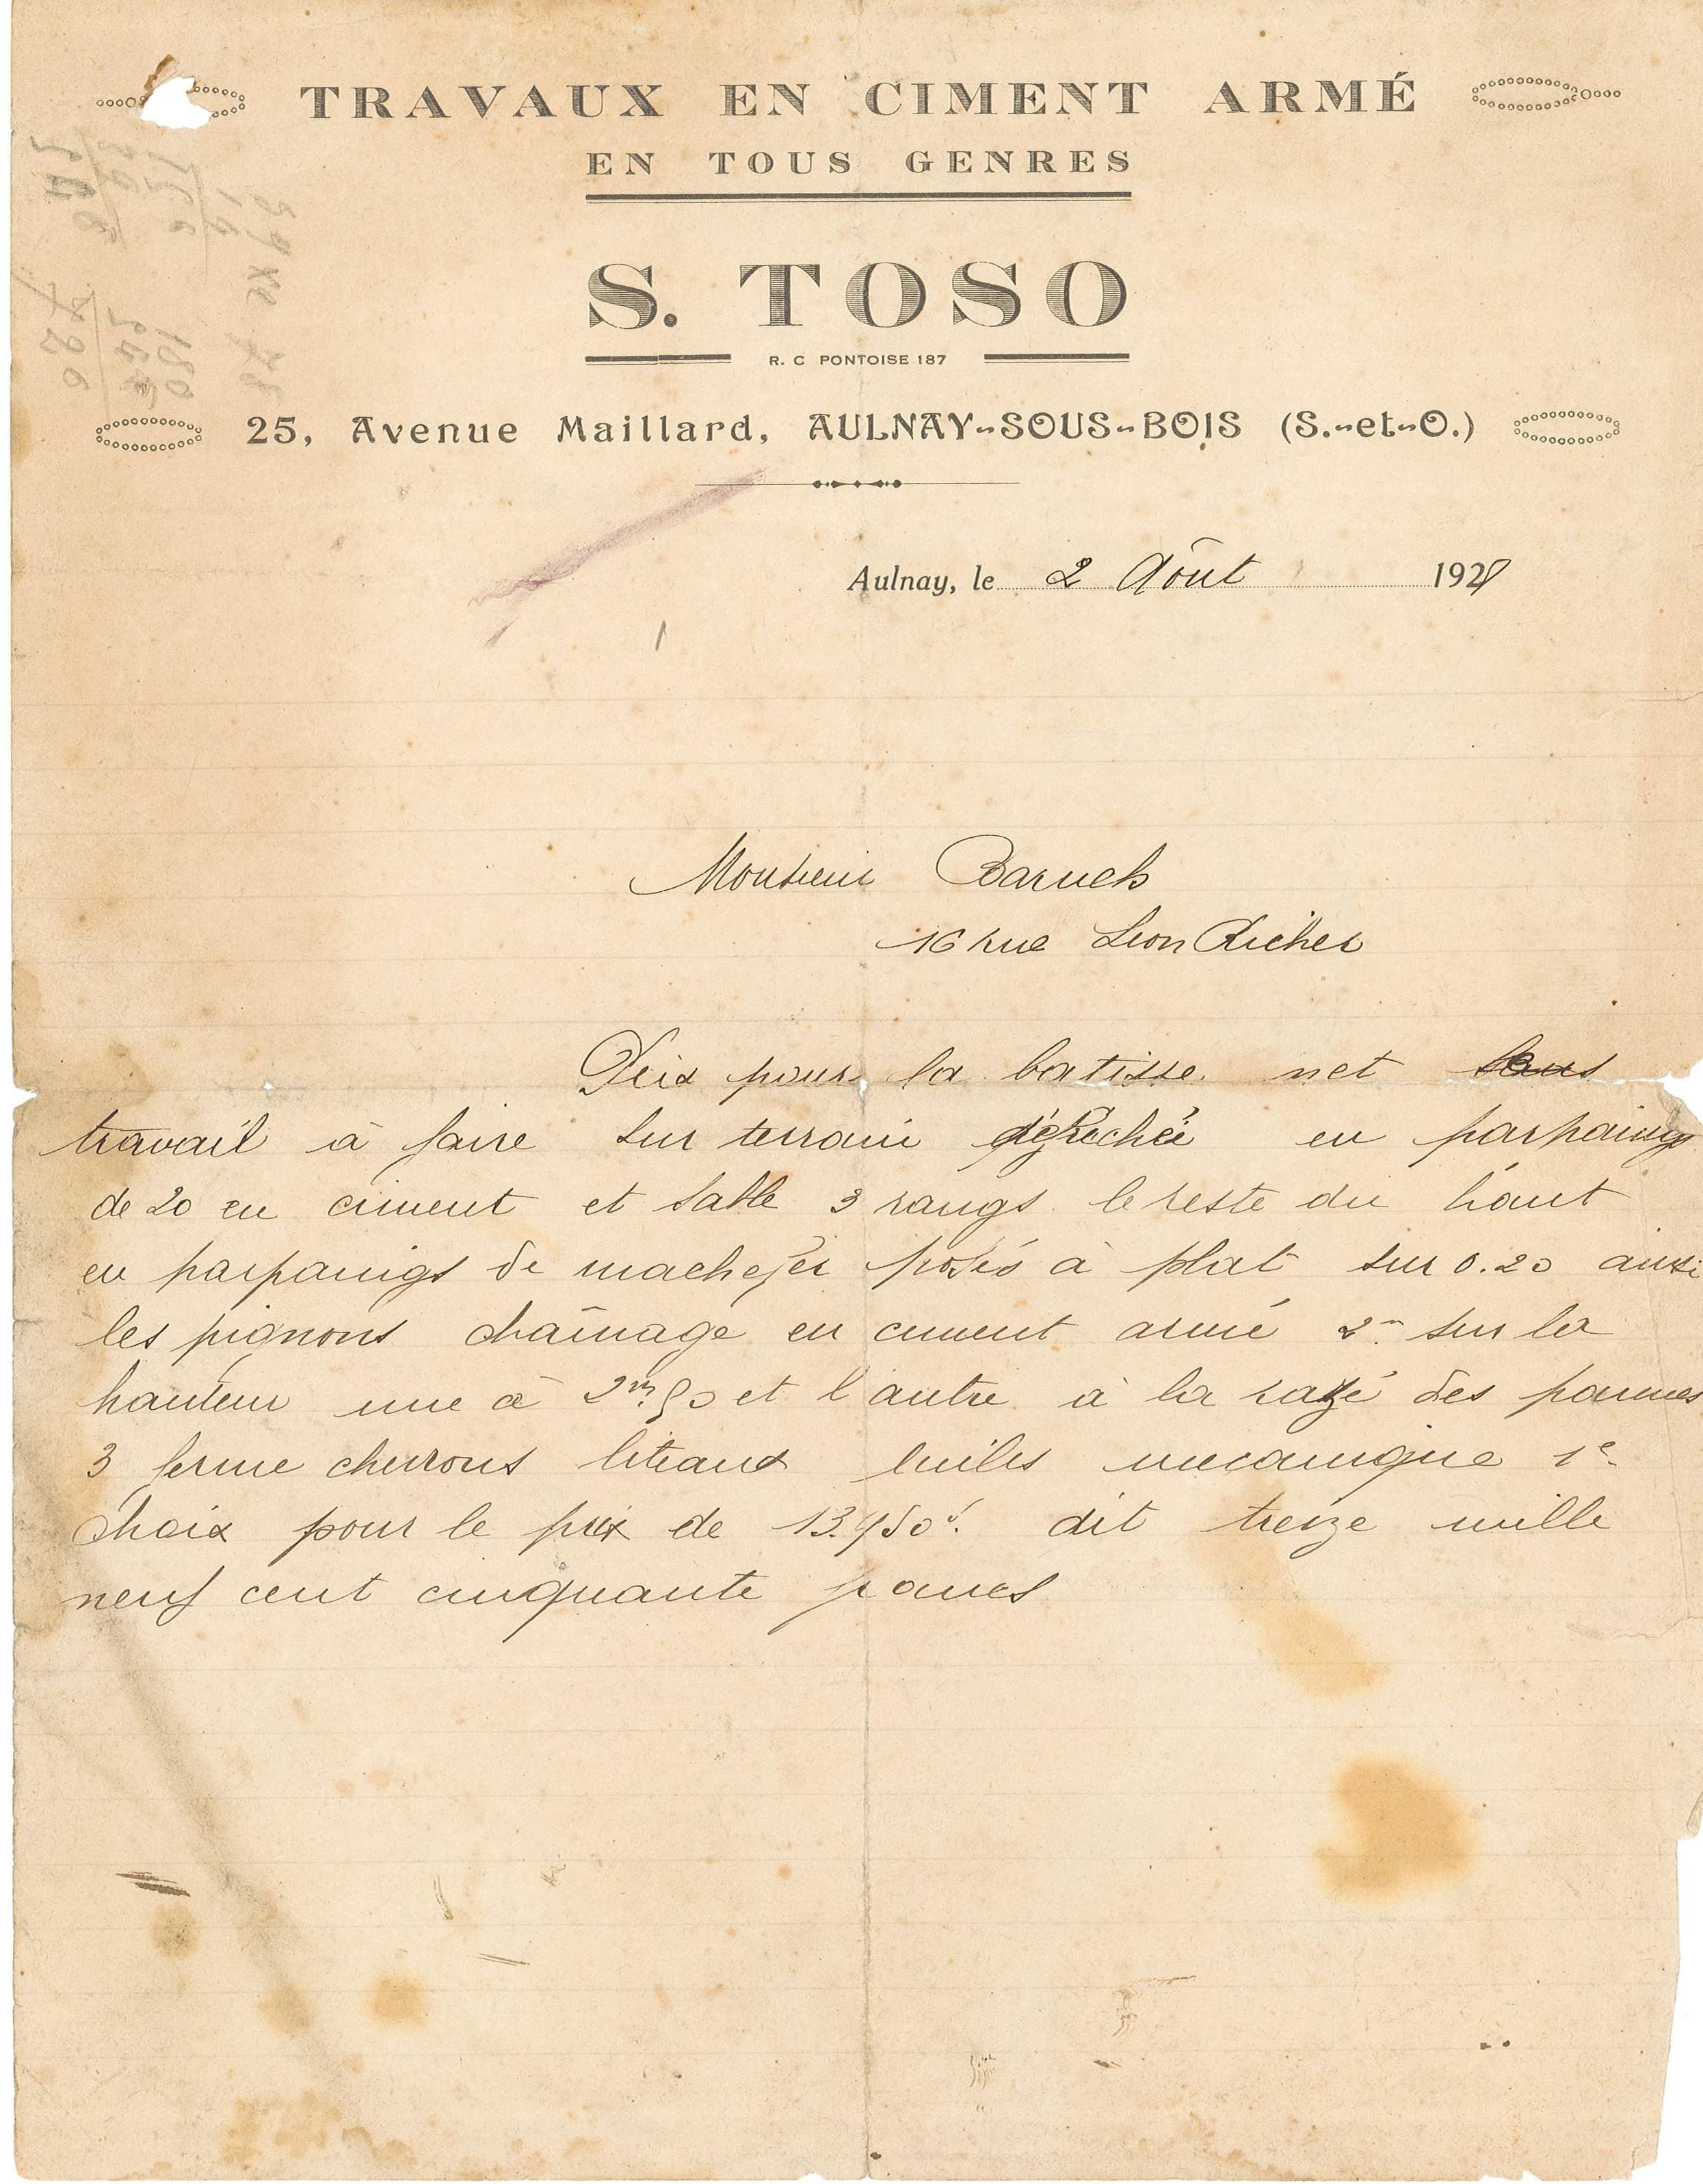 TRAVAUX EN CIMENT ARMÉ
EN TOUS GENRES
S. TOSO
R. C PONTOISE 187
25, Avenue Maillard, AULNAY-SOUS-BOIS (S.-et-O.)
Aulnay, le 2 Aôut 192
Monsieur Baruch
16 rue Leon Richer
Prix pour la batisse net
travail à faire sur terrain en parpaings
de 20 en ciment et sable 3 rangs le reste du haut
en parpanigs de machefer posés à plat sur 0.20 ausi
les pignons chaînage en ciment armé 2m sur la
hauteur une à 2m.50 et l'autre à la des pannes
3 ferme chevrons liteaux tuiles mecanique 1e
choix pour le prix de 13.950f. dit treize mille
neuf cent cinquante francs